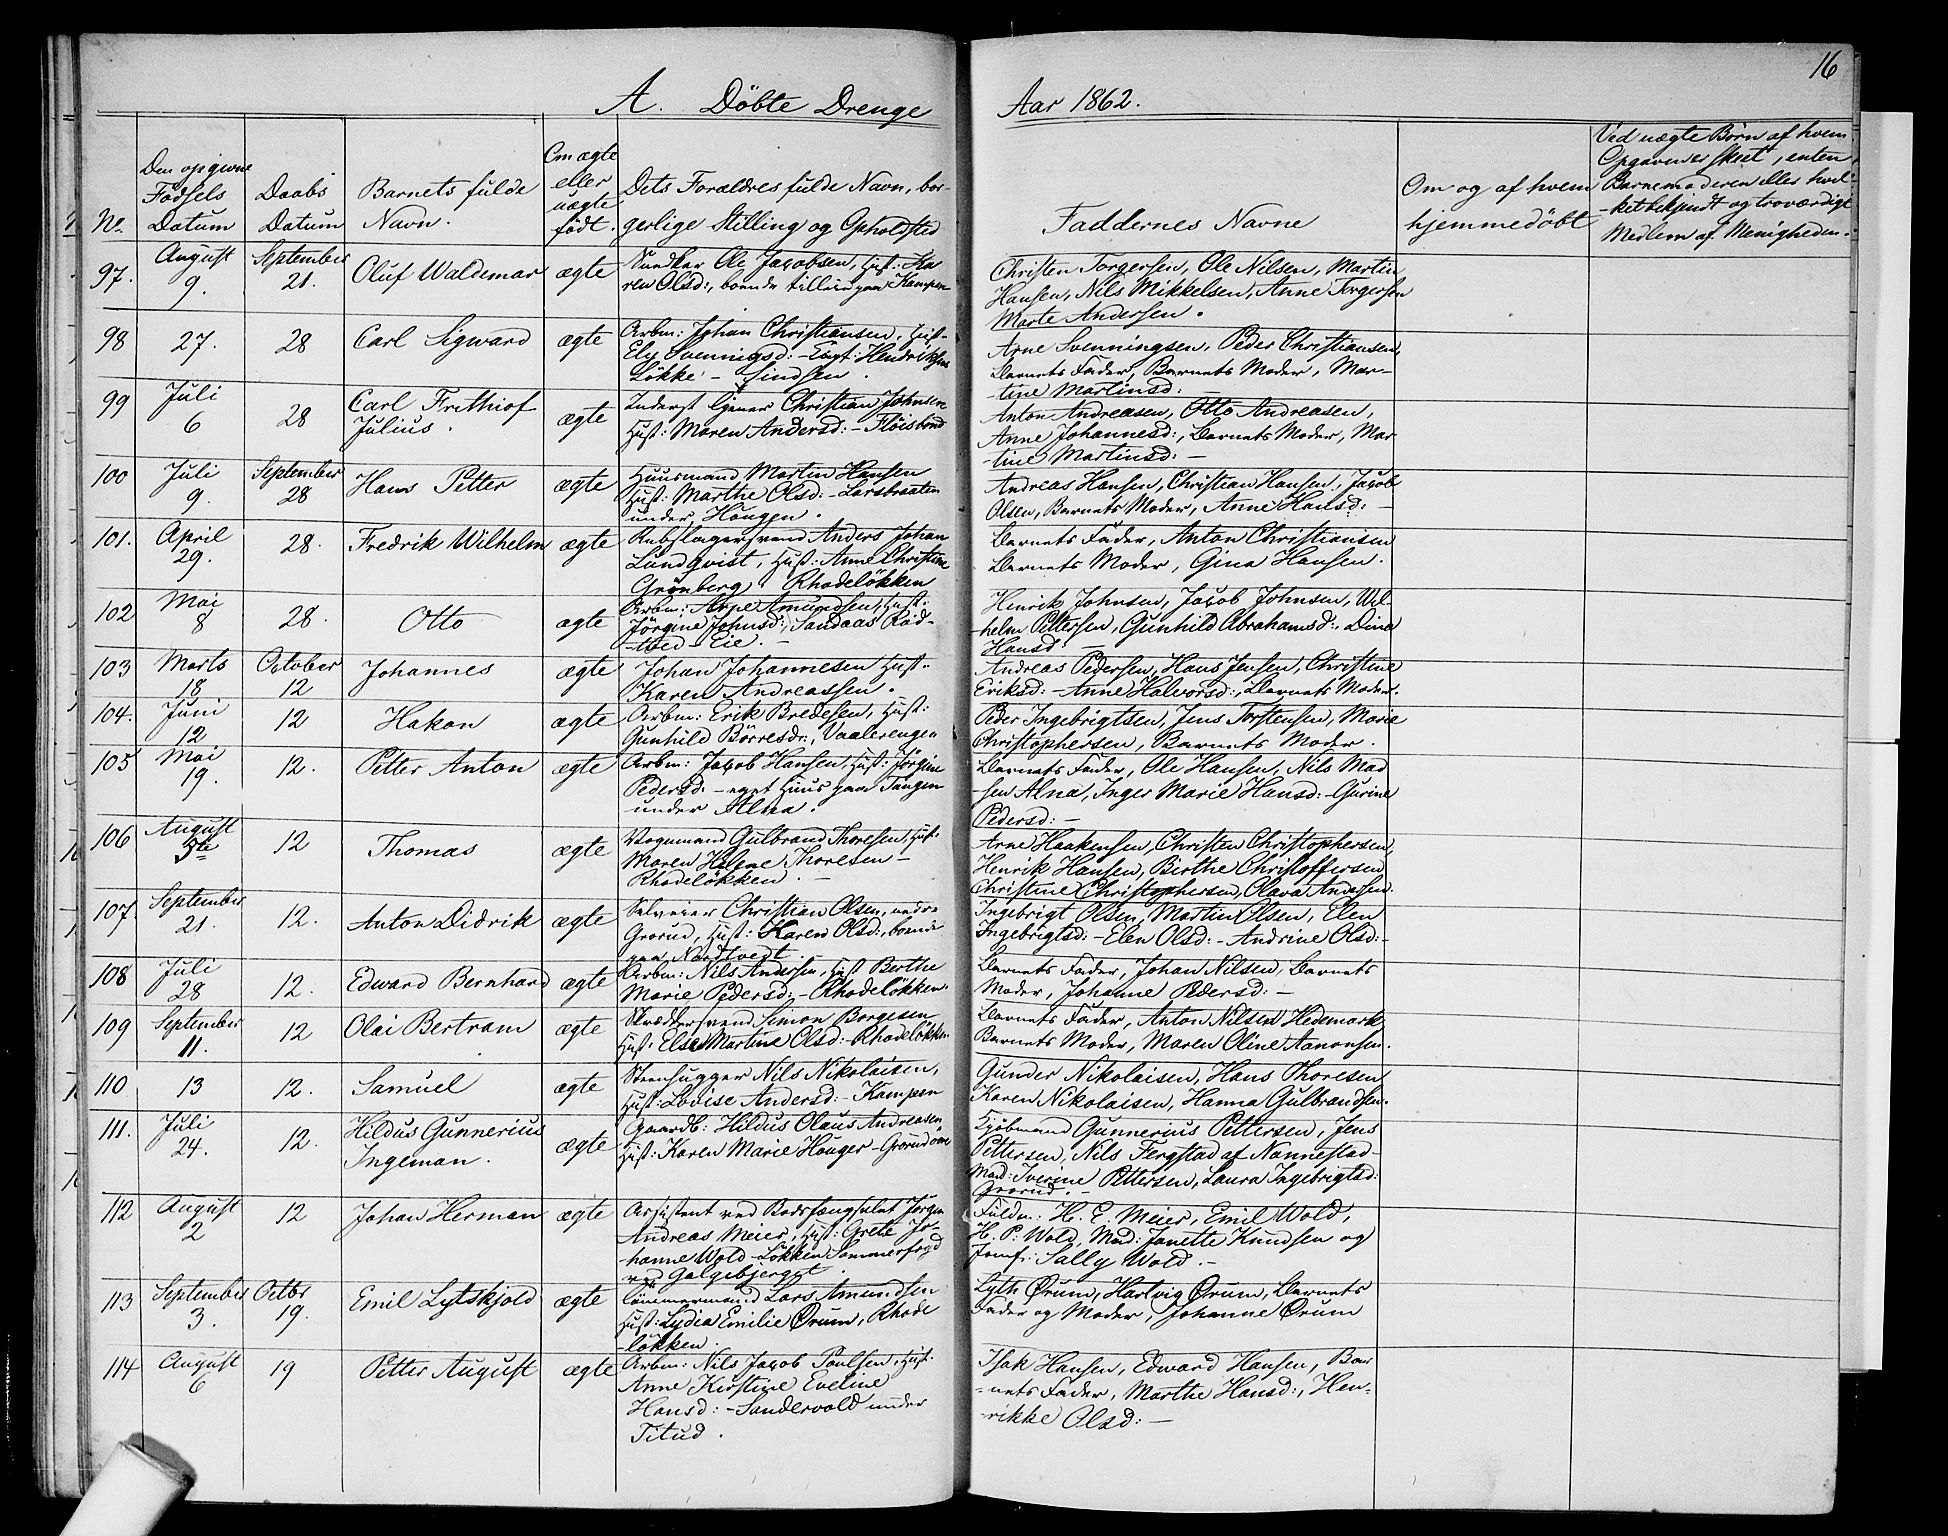 16
A. Döbte Drenge
Aar 1862.
No
Den opgivne
Födsels
Datum
Daabs
Datum
Barnets fulde
Navn.
Om ægte
eller
uægte
födt.
Dets Forældres fulde Navn, bor-
gerlige Stilling og Opholdsted
Faddernes Navne
Om og af hvem
hjemmedöbt
Ved uægte Börn af hvem
Opgaven er skeet, enten
Barnemoderen eller hvil-
-ket bekjendt og troværdigt
Medlem af Menigheden.
97.
August
9.
September
21.
Oluf Waldemar
ægte
Ole Jacobsen, Hust: Ka
ren Olsd:, boende tilleie paa Kampen
Christen Torgersen, Ole Nilsen, Martin
Hansen, Nils Mikkelsen, Anne Torgersen
Marte Andersen.
98
27.
28
Carl Sigward
ægte
Arbm: Johan Christiansen, Hust-
Ely Svenningsd: - Hendriksens
Lökke -
Arne Svenningsen, Peder Christiansen,
Barnets Fader, Barnets Moder, Mar-
-tine Martinsd:
99
Juli
6
28
Carl Frithiof
Julius.
ægte
Inderst Christian Johnsen
Hust: Maren Andersd: - Flöisbond
Anton Andreasen, Otto Andreasen,
Anne Johannesd:, Barnets Moder, Mar
-tine Martinsd: -
100
Juli
9.
September
28
Hans Petter
ægte
Huusmand Martin Hansen
Hust: Marthe Olsd: - Larsbraaten
under Hougen.
Andreas Hansen, Christian Hansen, Jacob
Olsen, Barnets Moder, Anne Hansd: -
101.
April
29.
28.
Fredrik Wilhelm
ægte
Rebslagersvend Anders Johan
Lundqvist, Hust: Anne Christine
Grönberg Rhodelökken
Barnets Fader, Anton Christiansen
Barnets Moder, Gina Hansen.
102
Mai
8
28.
Otto
ægte
Arbm: Amundsen, Hust:
Jörgine Johnsd:, Sandaas
Henrik Johnsen, Jacob Johnsen, Wil-
-helm Pettersen, Gunhild Abrahamsd:, Dina
Hansd: -
103
Marts
18
October
12
Johannes
ægte
Johan Johannesen Hust:
Karen Andreassen.
Andreas Pedersen, Hans Jensen, Christine
Eriksd: - Anne Halvorsd:, Barnets Moder.
104.
Juni
12
12
Hakon
ægte
Arbm: Erik Bredesen, Hust:
Gunhild Börresdr:, Vaalerengen
Peder Ingebrigtsen, Jens Torstensen, Marie
Christophersen, Barnets Moder.
105
Mai
19.
12.
Petter Anton
ægte
Arbm: Jacob Hansen, Hust: Jörgine
Pedersd: - eget Huus paa Tangen
under Alna.
Barnets Fader, Ole Hansen, Nils Mad
-sen Alna, Inger Marie Hansd: - Gurine
Pedersd: -
106
August
5te
12
Thomas
ægte
Vognmand Gulbrand Thoresen, Hust.
Maren Helene Thoresen -
Rhodelökken. -
Arne Haakensen, Christen Christophersen,
Henrik Hansen, Birthe Christoffersen
Christine Christophersen, Olava Anderssen.
107.
September
21.
12.
Anton Didrik
ægte
Selveier Christian Olsen, nedre
Grorud, Hust: Karen Olsd:, boende
paa Nordtvedt
Ingebrigt Olsen, Martin Olsen, Elen
Ingebrigtsd: - Elen Olsd: - Andrine Olsd: -
108
Juli
28
12.
Edward Bernhard
ægte
Arbm: Nils Andersen, Hust Berthe
Marie Pedersd: - Rhodelökken.
Barnets Fader, Johan Nilsen, Barnets
Moder, Johanne Pedersd: -
109
September
11.
12
Olai Bertram
ægte
Skræddersvend Simon Borgesen
Hust: Else Martine Olsd: - Rhodelökken
Barnets Fader, Anton Nilsen Hedemark,
Barnets Moder, Maren Oline Aanonsen.
110
13
12.
Samuel
ægte
Steenhugger Nils Nikolaisen,
Hust: Lovise Andersd: - Kampen
Gunder Nikolaisen, Hans Thoresen
Karen Nikolaisen, Hanna Gulbrandsen.
111.
Juli
24.
12.
Hildus Gunnerius
Ingeman.
ægte
Gaardb: Hildus Olaus Andreasen
Hust: Karen Marie Houger - Grorud
Kjöbmand Gunnerius Pettersen, Jens
Pettersen, Nils Fergstad af Nannestad -
Mad: Iverine Pettersen, Laura Ingebrigtsd:
Grorud. -
112
August
2
12
Johan Herman
ægte
Assistent ved Bodsfængselet Jörgen
Andreas Meier, Hust: Grete Jo-
-hanne Wold - Lökken Sommerfryd
ved Galgebjerget.
Fuldm: H. E. Meier, Emil Wold,
H. P. Wold, Mad: Janette Knudsen og
Jomf: Sally Wold. -
113
September
3.
Octbr
19.
Emil Lytskjold
ægte
Tömmermand Lars Amundsen
Hust: Lydia Emilie Örum, Rhode
lökken.
Lyth Örum, Hartvig Örum, Barnets
Fader og Moder, Johanne Örum
114
August
6
19
Petter August
ægte
Arbm: Nils Jacob Poulsen, Hust:
Anne Kirstine Eveline
Hansd: - Sandervold under
Titud.
Isak Hansen, Edward Hansen, Bar
-nets Fader, Marthe Hansd:, Hen-
-rikke Olsd: -